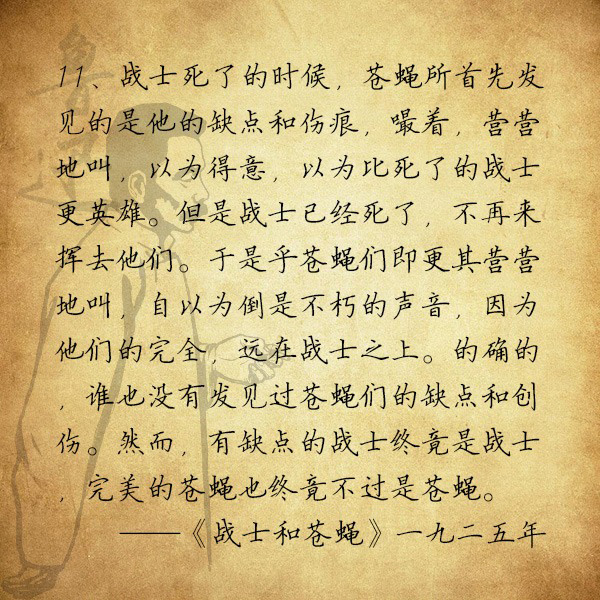 鲁迅
11、战士死了的时候，苍蝇所首先发
见的是他的缺点和伤痕，嘬着，营营
地叫，以为得意，以为比死了的战士
更英雄。但是战士已经死了，不再来
挥去他们。于是乎苍蝇们即更其营营
地叫，自以为倒是不朽的声音，因为
他们的完全，远在战士之上。的确的
，谁也没有发见过苍蝇们的缺点和创
伤。然而，有缺点的战士终竟是战士
，完美的苍蝇也终竟不过是苍蝇。
——《战士和苍蝇》一九二五年